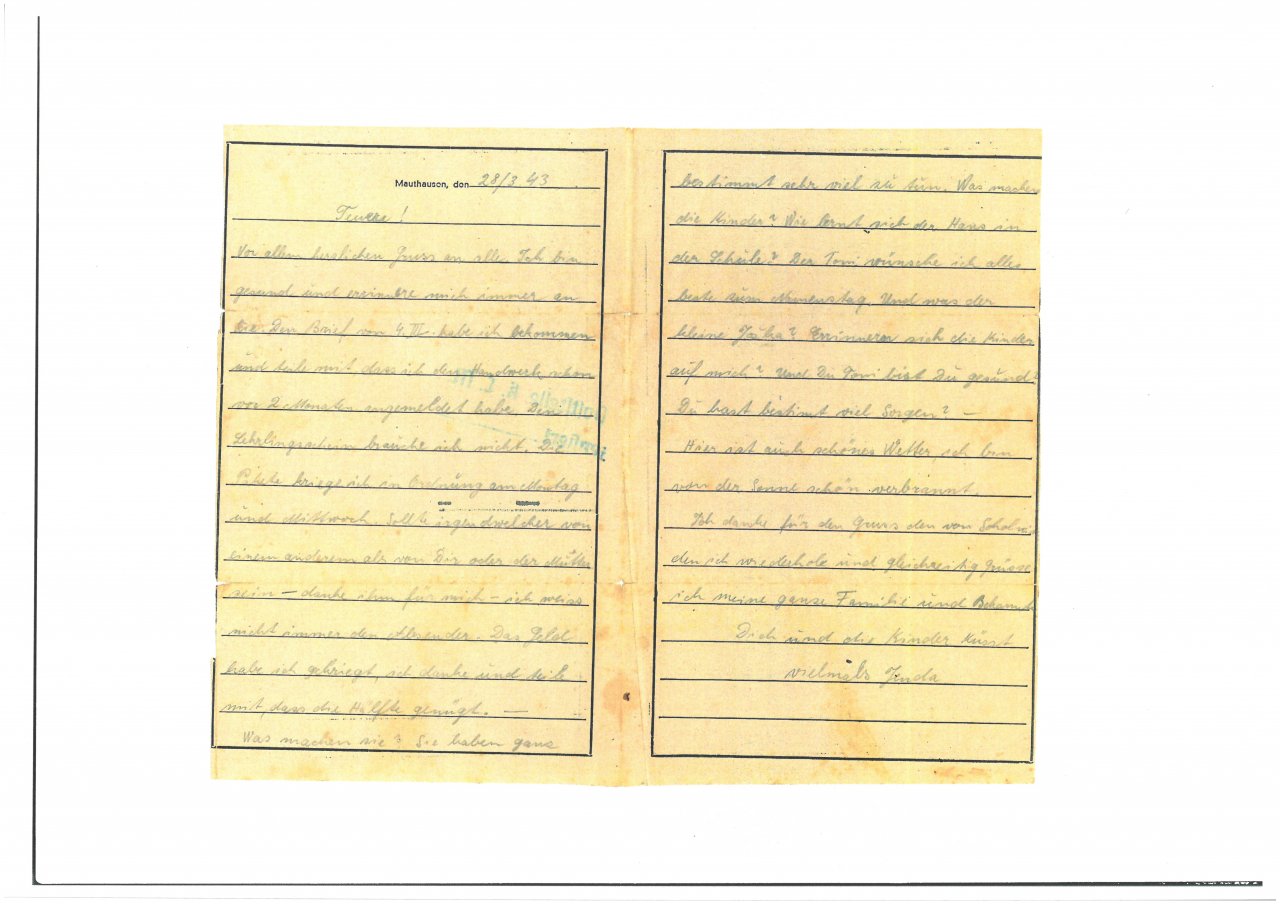 Mauthausen, den 28/3 43
Teuere!
Vor allem herzlichen Gruss an alle. Ich bin
gesund und erinnere mich immer an
Sie. Den Brief von 4. III. habe ich bekommen
und teile mit dass ich den Handwerk schon
vor 2 Monaten angemeldet habe. Den
Lehrlingsschein brauche ich nicht. Die
Pakete kriege ich in Ordnung am Montag
und Mittwoch. Sollte irgendwelcher von
einem anderem als von Dir oder der Mutter
sein – danke ihm für mich – ich weiss
nicht immer den Absender. Das Geld
habe ich gekriegt, ich danke und teile
mit, dass die Hälfte genügt. —
Was machen sie? Sie haben ganz
bestimmt sehr viel zu tun. Was machen
die Kinder? Wie lernt sich der Hans in
der Schule? Der Toni wünsche ich alles
beste zum Namenstag. Und was der
kleine? Errinneren sich die Kinder
auf mich? Und Du Toni bist Du gesund?
Du hast bestimt viel Sorgen? —
Hier ist auch schönes Wetter, ich bin
von der Sonne schön verbrannt.
Ich danke für den Gruss den von
den ich wiederhole und gleichzeitig Grüsse
ich meine ganze Familie und
Dich und die Kinder küsst
vielmals Jenda